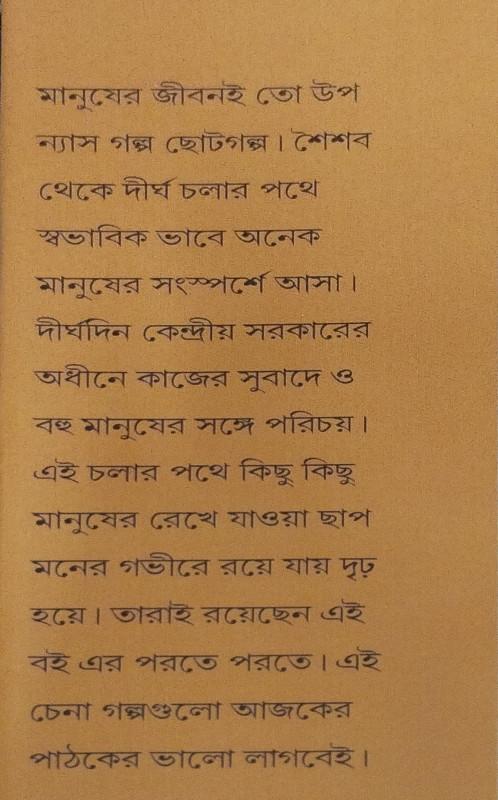 মানুষের জীবনই তো উপ
ন্যাস গল্প ছোটগল্প। শৈশব
থেকে দীর্ঘ চলার পথে
স্বভাবিক ভাবে অনেক
মানুষের সংস্পর্শে আসা।
দীর্ঘদিন কেন্দ্রীয় সরকারের
অধীনে কাজের সুবাদে ও
বহু মানুষের সঙ্গে পরিচয়।
এই চলার পথে কিছু কিছু
মানুষের রেখে যাওয়া ছাপ
মনের গভীরে রয়ে যায় দৃঢ়
হয়ে। তারাই রয়েছেন এই
বই এর পরতে পরতে। এই
চেনা গল্পগুলো আজকের
পাঠকের ভালো লাগবেই।